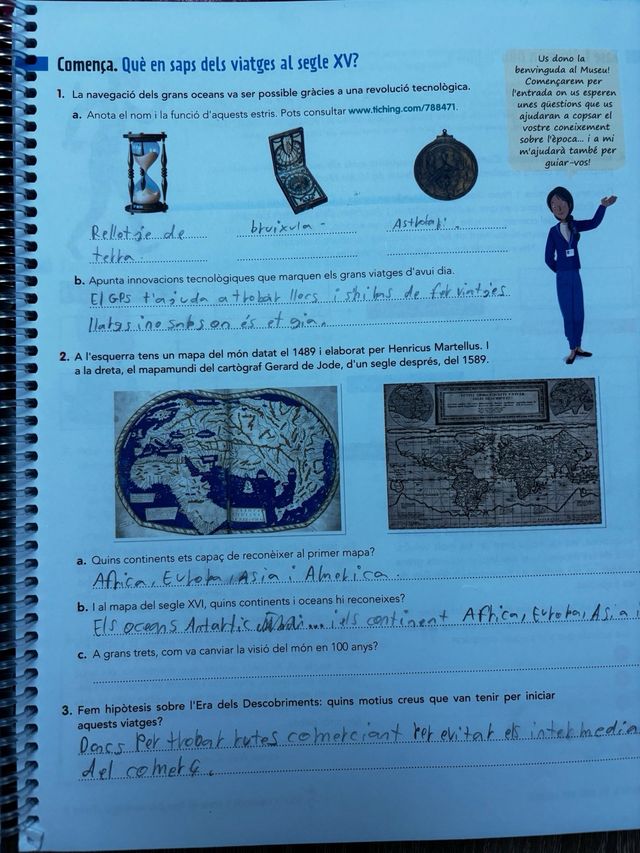 Comença. Què en saps dels viatges al segle XV?
Us dono la
benvinguda al Museu!
Començarem per
l'entrada on us esperen
unes qüestions que us
ajudaran a copsar el
vostre coneixement
sobre l'època... i a mi
m'ajudarà també per
guiar-vos!
1. La navegació dels grans oceans va ser possible gràcies a una revolució tecnològica.
a. Anota el nom i la funció d'aquests estris. Pots consultar www.tiching.com/788471.
Rellotje de
terra
bruixula
b. Apunta innovacions tecnològiques que marquen els grans viatges d'avui dia.
El GPS t'ajuda a trobar llocs i de fer viatges
llargs i no saps on és et gia.
2. A l'esquerra tens un mapa del món datat el 1489 i elaborat per Henricus Martellus. I
a la dreta, el mapamundi del cartògraf Gerard de Jode, d'un segle després, del 1589.
a. Quins continents ets capaç de reconèixer al primer mapa?
Africa, Europa, Asia i America.
b. I al mapa del segle XVI, quins continents i oceans hi reconeixes?
Els oceans Antartic ... i els continent Africa, Europa, Asia i
c. A grans trets, com va canviar la visió del món en 100 anys?
3. Fem hipòtesis sobre l'Era dels Descobriments: quins motius creus que van tenir per iniciar
aquests viatges?
Doncs Per trobar rutes comerciant per evitar els intermedia
del comerç.